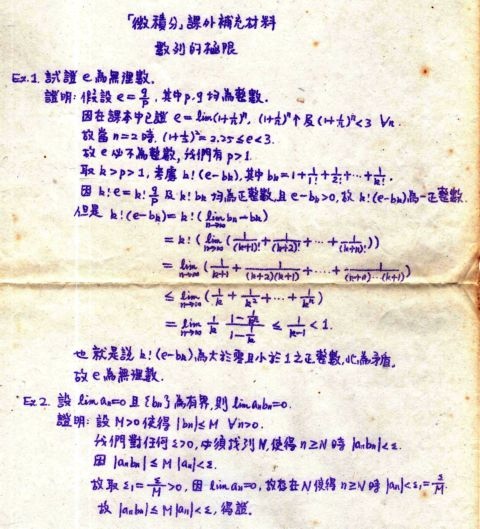 「微積分」課外補充材料
數列的極限
Ex.1. 試證 e 為無理數.
證明: 假設 e = q/p, 其中 p.q 均為整數.
因在課本中已證 e = lim(1+1/n)^n, (1+1/n)^n ↑ 及 (1+1/n)^n < 3 ∀n.
故當 n=2 時, (1+1/2)^2 = 2.25 ≤ e < 3.
故 e 必不為整數, 我們有 p>1.
取 k>p>1, 考慮 k!(e-bk), 其中 bk = 1+1/1!+1/2!+⋯+1/k!.
因 k!e = k! q/p 及 k! bk 均為正整數, 且 e-bk>0, 故 k!(e-bk) 為一正整數.
但是 k!(e-bk) = k!(lim_{n→∞} bn - bk)
= k!(lim_{n→∞}(1/(k+1)!+1/(k+2)!+⋯+1/(k+n)!))
= lim_{n→∞}(1/(k+1)+1/((k+2)(k+1))+⋯+1/((k+n)⋯(k+1)))
≤ lim_{n→∞}(1/k+1/k^2+⋯+1/k^n)
= lim_{n→∞} 1/k (1-1/k^n)/(1-1/k) ≤ 1/(k-1) < 1.
也就是說 k!(e-bk) 為大於零且小於 1 之正整數, 此為矛盾.
故 e 為無理數.
Ex.2. 設 lim an=0 且 {bn} 為有界, 則 lim anbn=0.
證明: 設 M>0 使得 |bn|≤M ∀n>0.
我們對任何 ε>0, 必須找到 N, 使得 n≥N 時 |anbn|<ε.
因 |anbn| ≤ M|an| < ε.
故取 ε1=ε/M>0, 因 lim an=0, 故存在 N 使得 n≥N 時 |an|<ε1=ε/M.
故 |anbn| ≤ M|an| < ε, 得證.